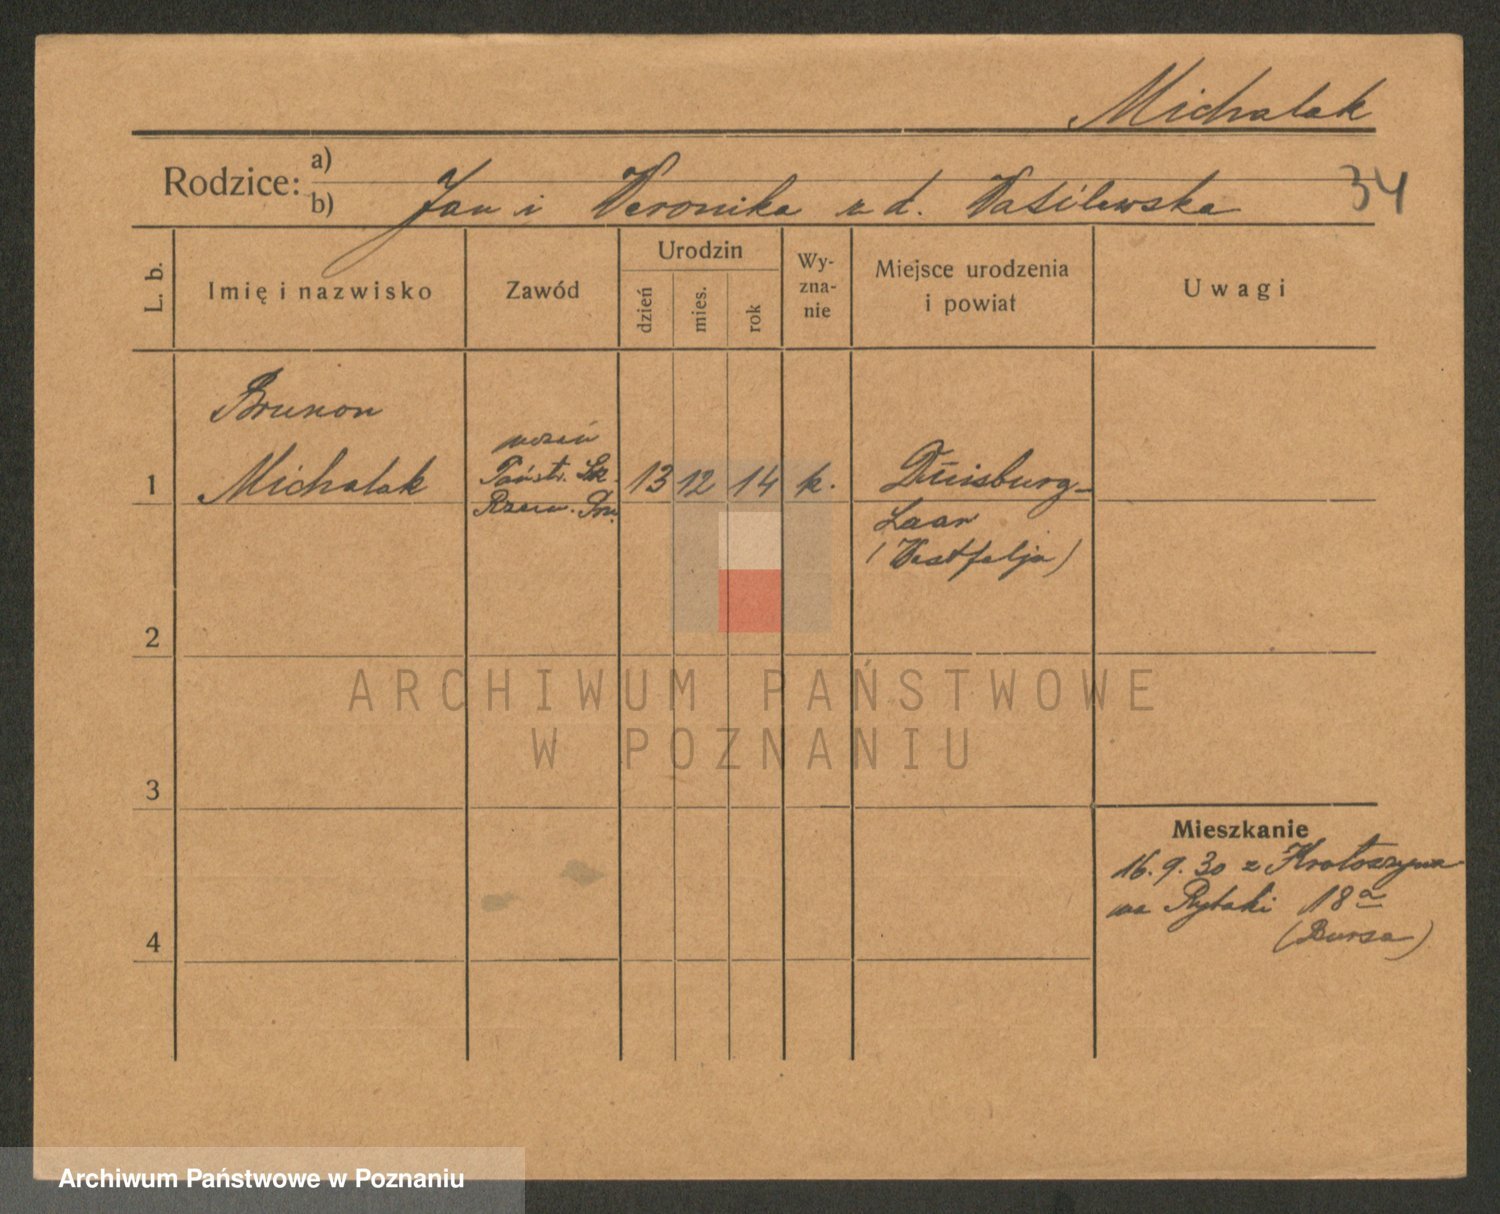 Michalak
Rodzice: a)
b) Jan i Weronika z d. Wasilewska
34
L. b.
Imię i nazwisko
Zawód
Urodzin
dzień
mies.
rok
Wy-
zna-
nie
Miejsce urodzenia
i powiat
Uwagi
Brunon
1 Michalak
uczeń
Państw. Szk.
Rzem. Prz.
13 12 14 k.
Duisburg-
Laar
(Westfalja)
2
3
4
Mieszkanie
16.9.30 z Krotoszyna
na Rybaki 18a
(Bursa)
ARCHIWUM PAŃSTWOWE
W POZNANIU
Archiwum Państwowe w Poznaniu